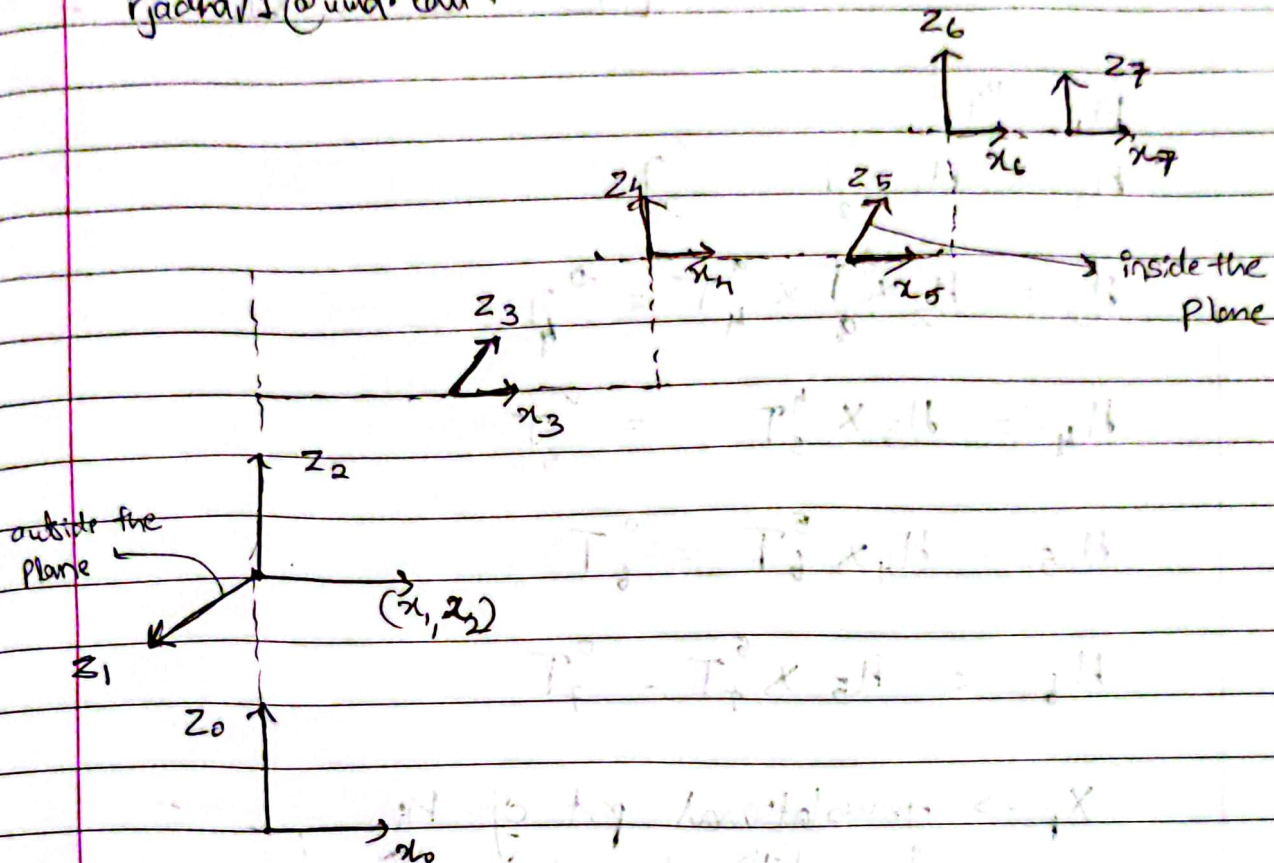 z6
z7
x6
x7
z4
z5
x4
x5
inside the
plane
z3
x3
z2
outside the
plane
(x1, x2)
z1
z0
x0